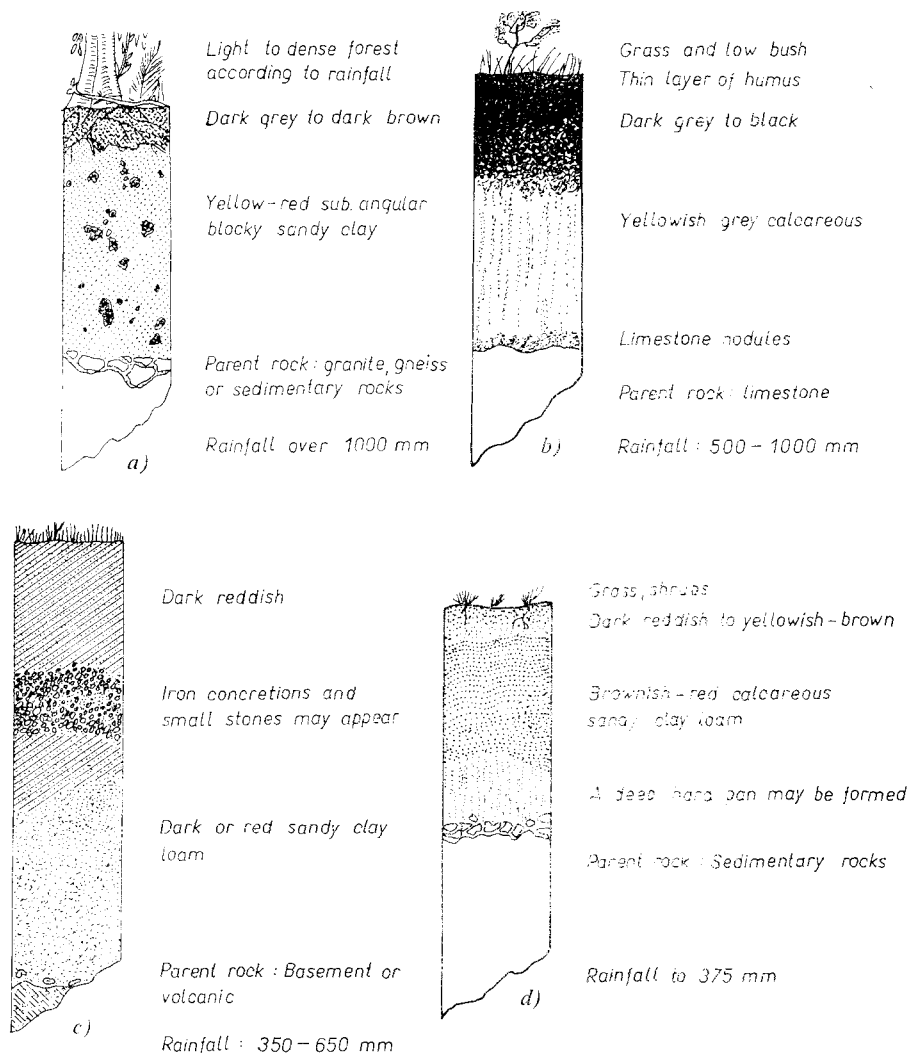 Light to dense forest
according to rainfall
Dark grey to dark brown
Yellow-red sub. angular
blocky sandy clay
Parent rock: granite, gneiss
or sedimentary rocks
Rainfall over 1000 mm
a)
Grass and low bush
Thin layer of humus
Dark grey to black
Yellowish grey calcareous
Limestone nodules
Parent rock: limestone
Rainfall: 500-1000 mm
b)
Dark reddish
Iron concretions and
small stones may appear
Dark or red sandy clay
loam
Parent rock: Basement or
volcanic
Rainfall: 350-650 mm
c)
Grass, shrubs
Dark reddish to yellowish-brown
Brownish-red calcareous
sandy clay loam
A deep hard pan may be formed
Parent rock: Sedimentary rocks
Rainfall to 375 mm
d)